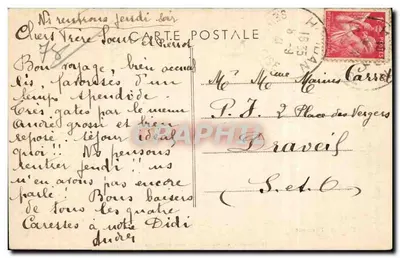 Ns rentrons jeudi soir
Chers Frère Sœur et Pierrot
CARTE POSTALE
Bon voyage, bien accueil
lis, favorisés d'un
temps splendide.
Très gatés par le menu
André grossi et bien
reposé, séjour idéal
quoi!! Ns pensons
rentrer jeudi!! ns
n'en avons pas encore
parlé! Bons baisers
de tous les quatre
Caresses à notre Didi
André
Mr Mme Marius Carret
P.J. 2 Place des Vergers
Draveil
S.et O.